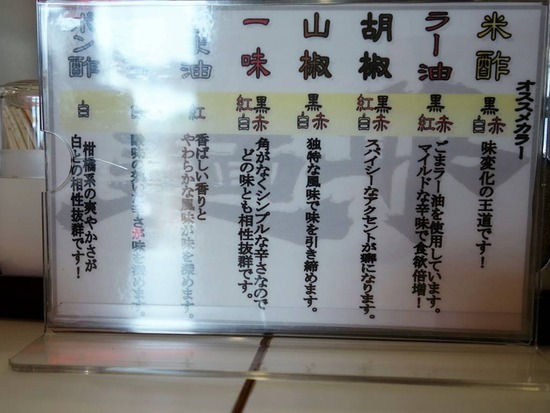 オススメカラー
米酢
黒赤
白
味変化の王道です！
ラー油
赤
紅
ごまラー油を使用しています。
マイルドな辛味で食欲倍増！
胡椒
黒赤
紅白
スパイシーなアクセントが癖になります。
山椒
黒赤
白
独特な風味で味を引き締めます。
一味
黒赤
紅白
角がなくシンプルな辛さなので
どの味とも相性抜群です。
油
紅
香ばしい香りと
やわらかな風味が味を深めます。
さが味を深めます。
ポン酢
白
柑橘系の爽やかさが
白との相性抜群です！